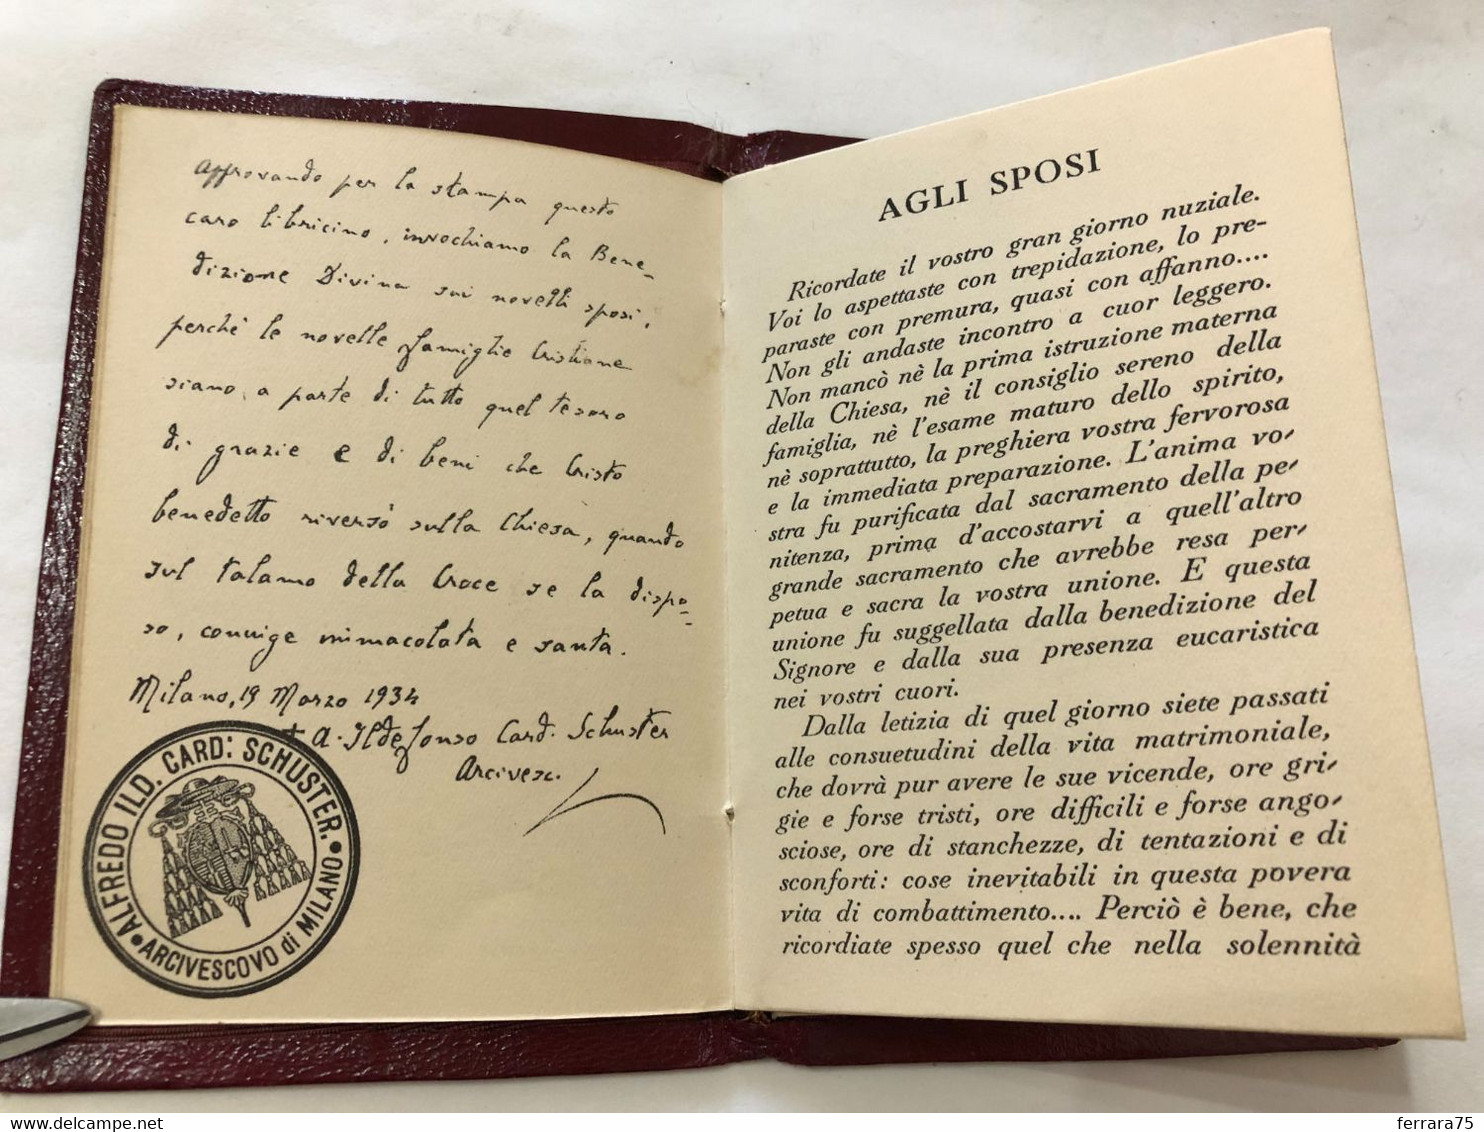 Approvando per la stampa questo
caro libricino, invochiamo la Bene-
dizione Divina sui novelli sposi,
perchè le novelle famiglie Cristiane
siano, a parte di tutto quel tesoro
di grazie e di beni che Cristo
benedetto riversò sulla Chiesa, quando
sul talamo della Croce se la dispo-
so, coniuge immacolata e santa.
Milano, 19 Marzo 1934
+ A. Ildefonso Card. Schuster
Arcivesc.
ALFREDO ILD. CARD: SCHUSTER.
ARCIVESCOVO di MILANO
AGLI SPOSI
Ricordate il vostro gran giorno nuziale.
Voi lo aspettaste con trepidazione, lo pre-
paraste con premura, quasi con affanno....
Non gli andaste incontro a cuor leggero.
Non mancò nè la prima istruzione materna
della Chiesa, nè il consiglio sereno della
famiglia, nè l'esame maturo dello spirito,
nè soprattutto, la preghiera vostra fervorosa
e la immediata preparazione. L'anima vo-
stra fu purificata dal sacramento della pe-
nitenza, prima d'accostarvi a quell'altro
grande sacramento che avrebbe resa per-
petua e sacra la vostra unione. E questa
unione fu suggellata dalla benedizione del
Signore e dalla sua presenza eucaristica
nei vostri cuori.
Dalla letizia di quel giorno siete passati
alle consuetudini della vita matrimoniale,
che dovrà pur avere le sue vicende, ore gri-
gie e forse tristi, ore difficili e forse ango-
sciose, ore di stanchezze, di tentazioni e di
sconforti: cose inevitabili in questa povera
vita di combattimento.... Perciò è bene, che
ricordiate spesso quel che nella solennità
delcampe.net
ferrara75